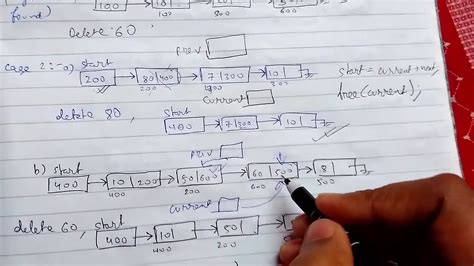 found)
100
180
100
200
Delete 60
Prev
Case 2:- a) start
200 80 400 7 300 10
200
Current
start = current → next,
free(current);
delete 80, start
400 7 300 10
Prev
b) start
400 10 200 50 600 60 500 8
400 200 600 500
Current
delete 60, start
400 10 50
400 200